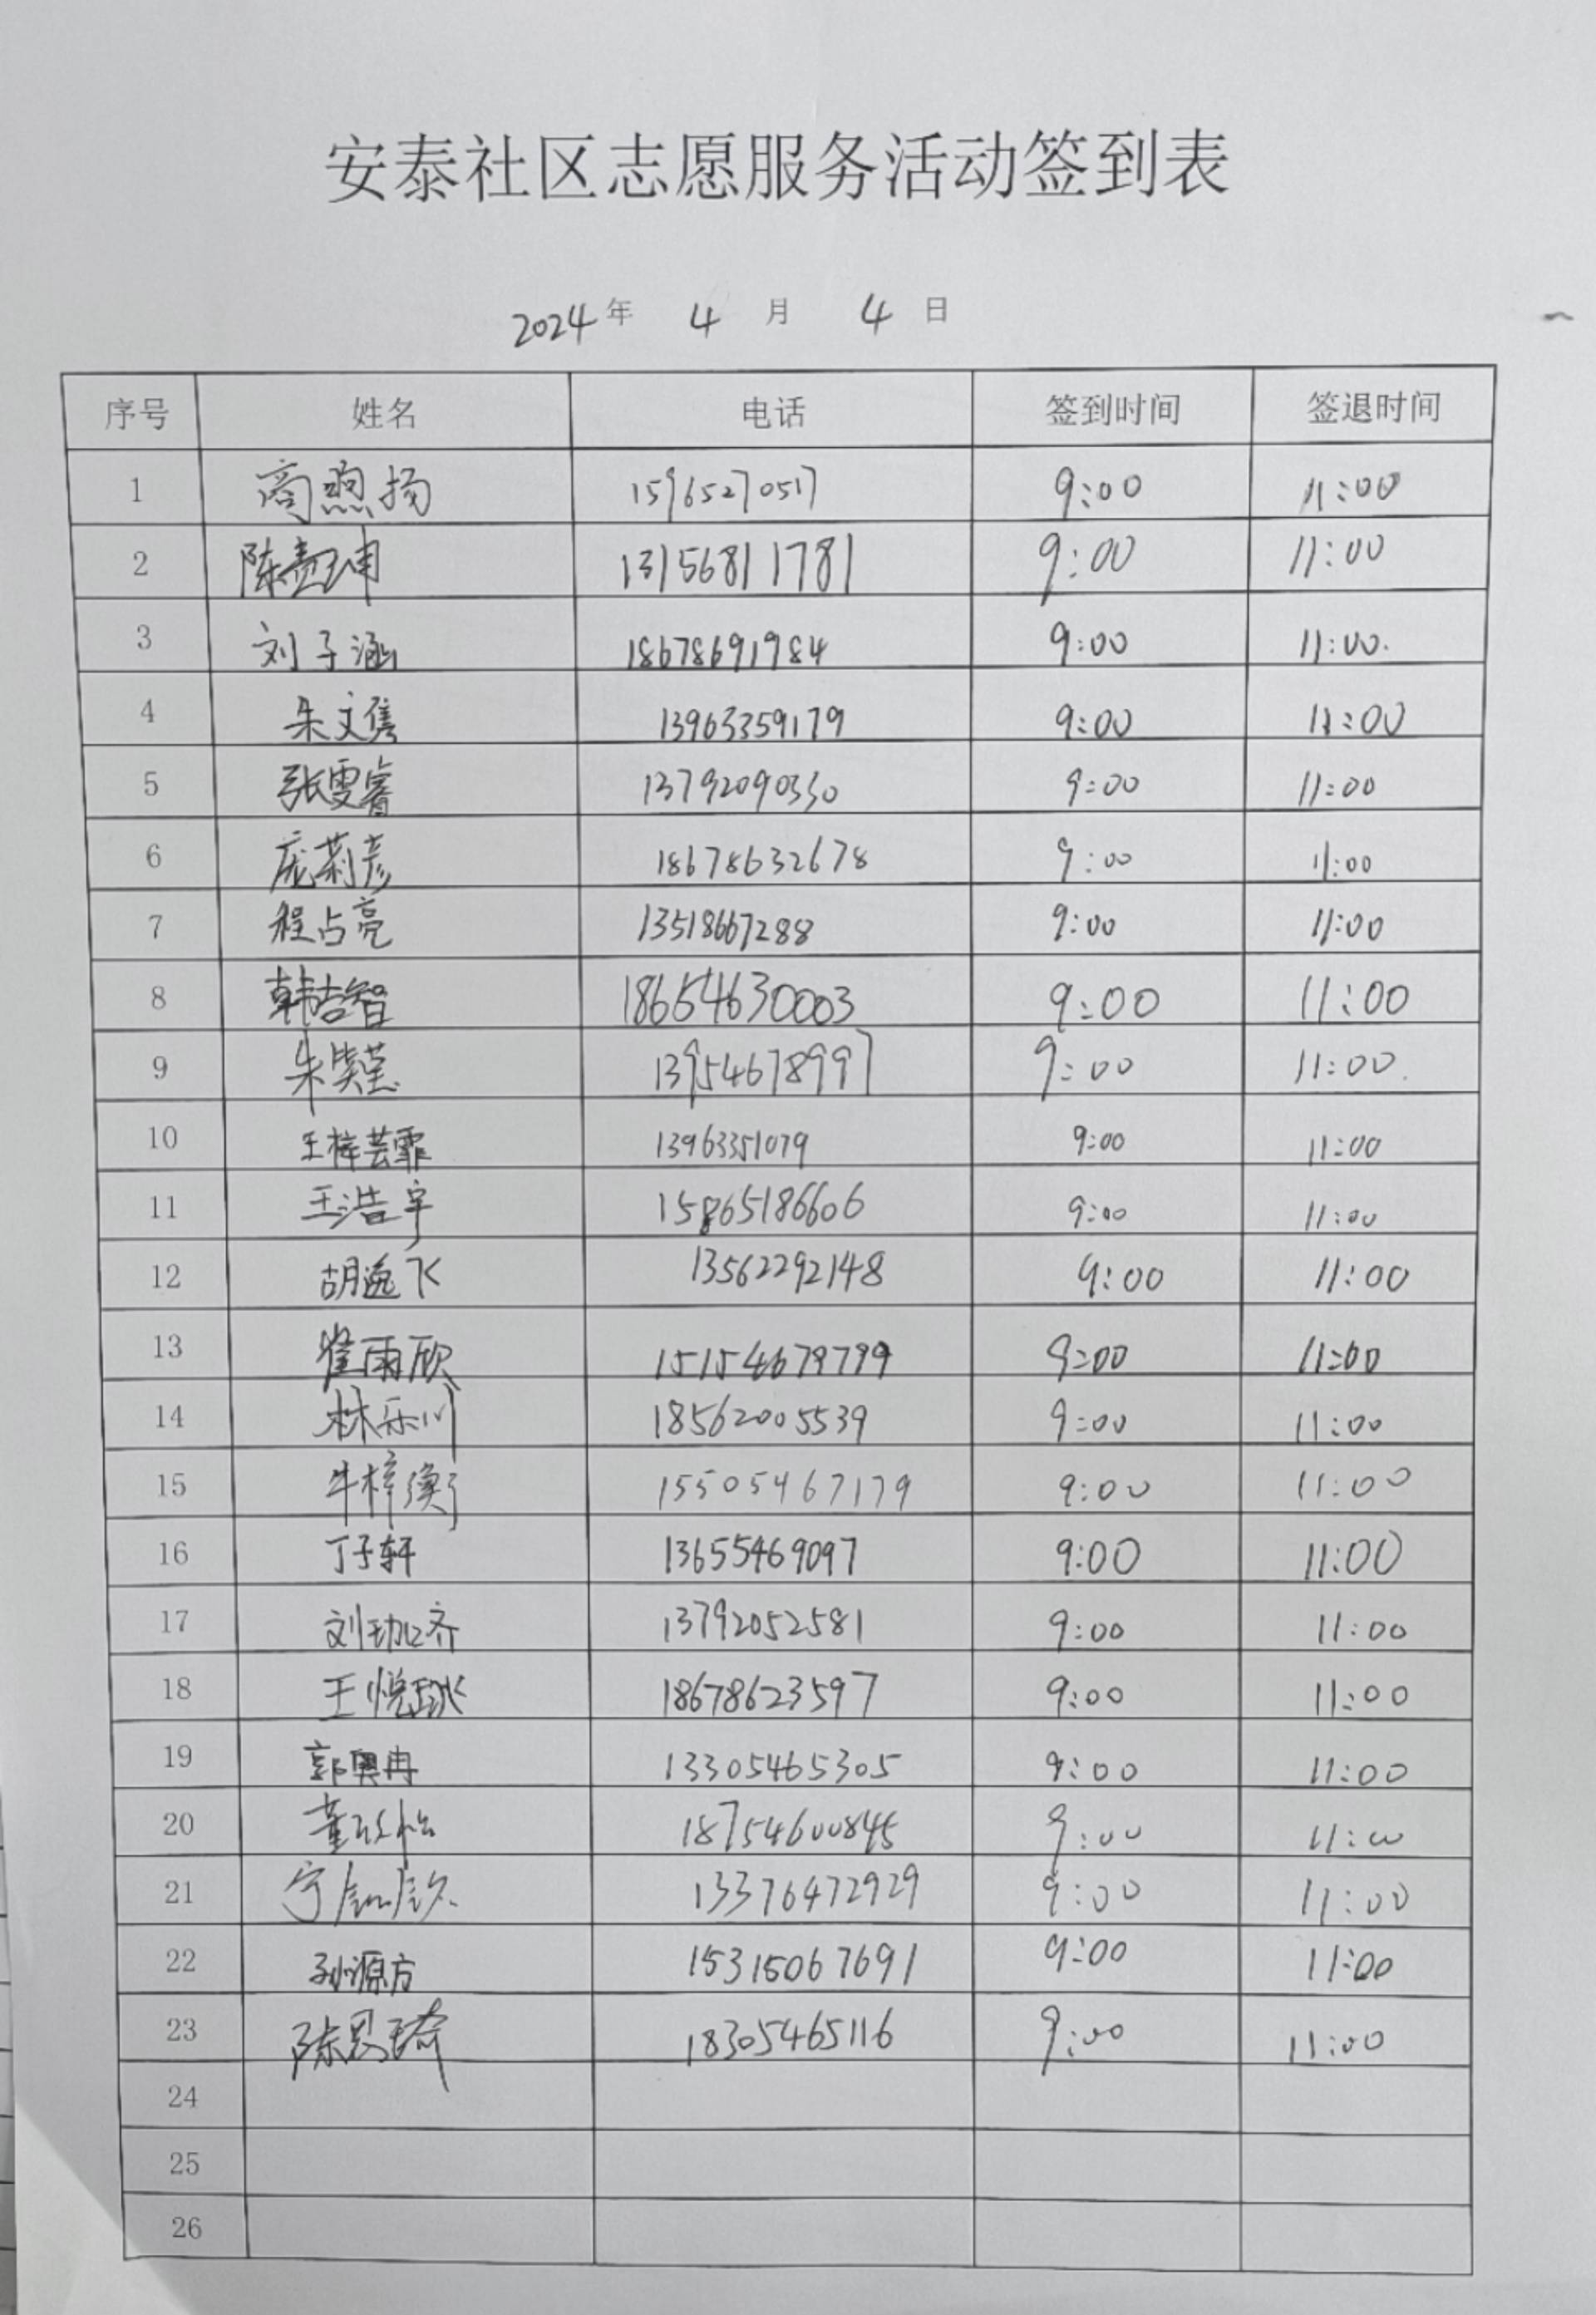 安泰社区志愿服务活动签到表
2024年 4 月 4 日
序号 姓名 电话 签到时间 签退时间
1 商煦扬 15965270517 9:00 11:00
2 陈 13156811781 9:00 11:00
3 刘子涵 18678691984 9:00 11:00.
4 朱文隽 13963359179 9:00 11:00
5 张雯睿 13792090330 9:00 11:00
6 庞莉彦 18678632678 9:00 11:00
7 程占亮 13518667288 9:00 11:00
8 韩吉智 18654630003 9:00 11:00
9 朱 13954678997 9:00 11:00.
10 王梓芸霏 13963351079 9:00 11:00
11 王浩宇 15865186606 9:00 11:00
12 胡逸飞 13562292148 9:00 11:00
13 崔雨欣 15154679799 9:00 11:00
14 林乐川 18562005539 9:00 11:00
15 牛梓衡 15505467179 9:00 11:00
16 丁子轩 13655469097 9:00 11:00
17 刘 13792052581 9:00 11:00
18 王悦 18678623597 9:00 11:00
19 郭奥冉 13305465305 9:00 11:00
20 董 18754600845 9:00 11:00
21 宁 13376472929 9:00 11:00
22 孙源方 15315067691 9:00 11:00
23 陈思琦 18305465116 9:00 11:00
24
25
26